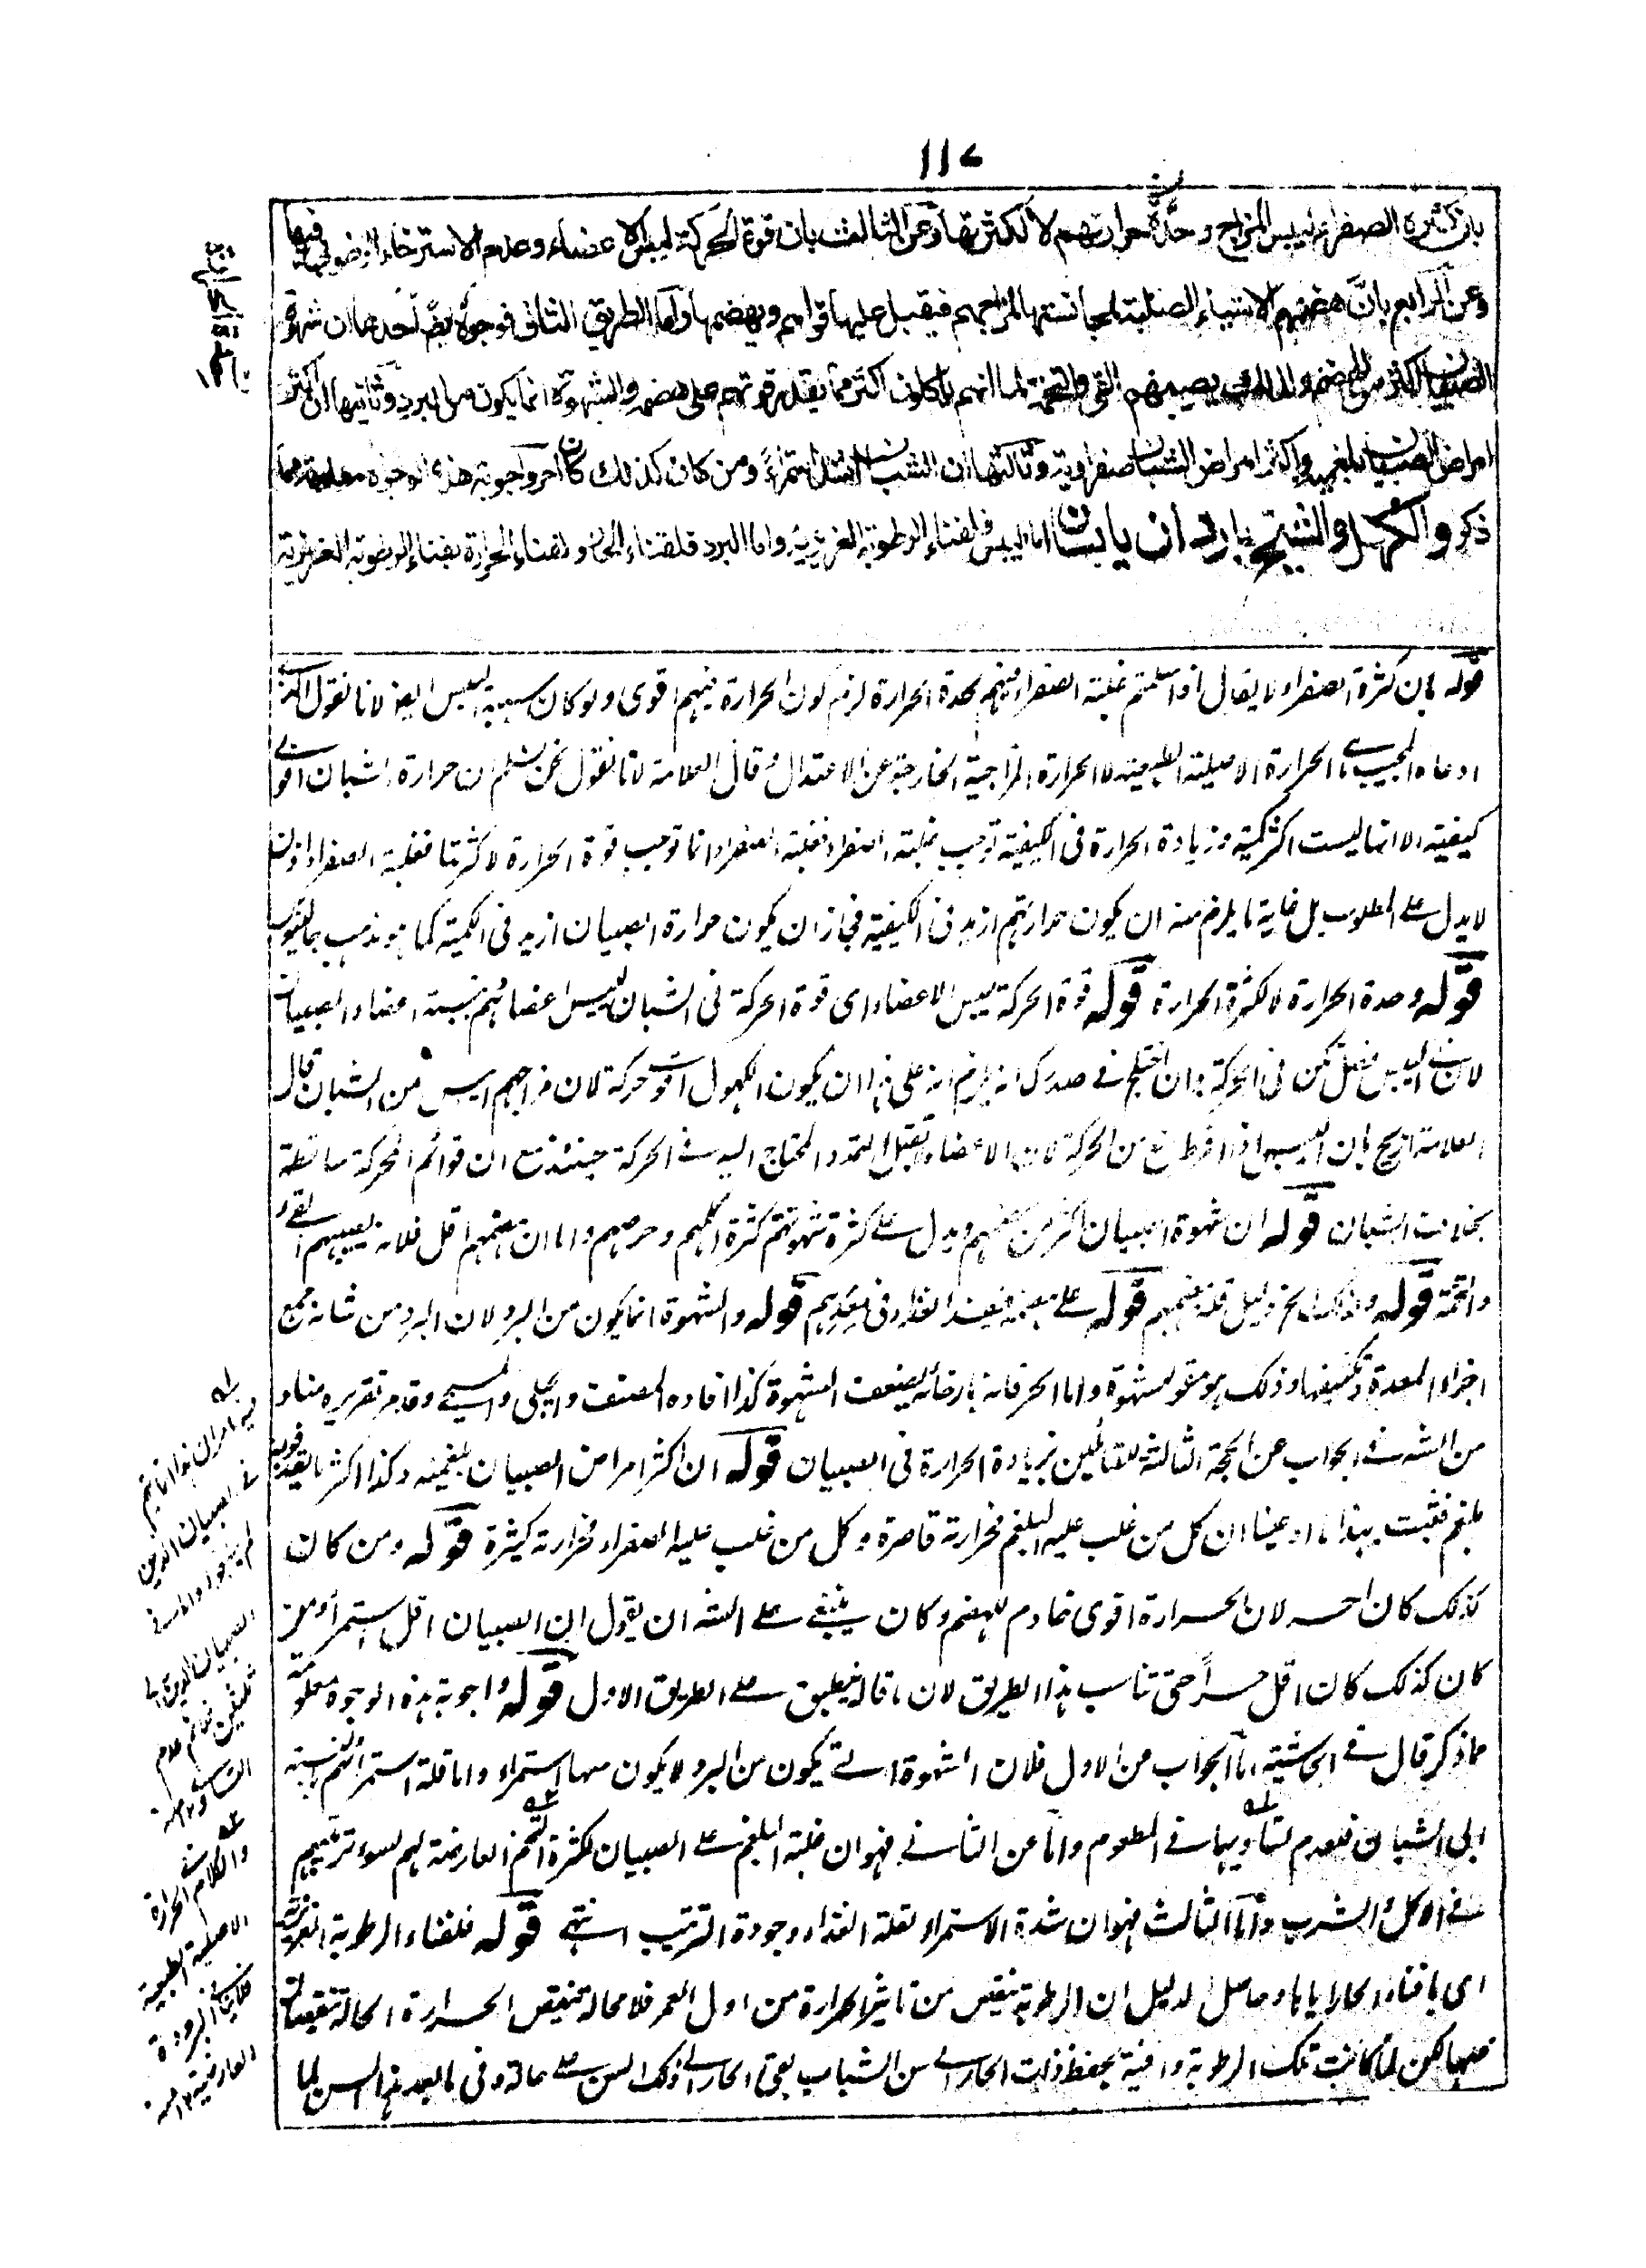 ١١٧
بان كثرة الصفراء ليبس المزاج وحدّة حرارتهم لا لكثرتها وعن الثالث بان قوة الحركة ليبس الاعضاء وعدم الاسترخاء الرطوبي فيها
وعن الرابع بانّ هضمهم الاشياء الصلبة لمجانستها لمزاجهم فيقبل عليها قواهم ويهضمها واما الطريق الثانى فوجوه ايضا احدها ان شهوة
الصبيان اكثر من الهضم ولذلك يصيبهم القئ والتخمة لما انهم ياكلون اكثر مما يقدر قوتهم على هضمه والشهوة انما يكون من البرد وثانيها ان اكثر
امراض الصبيان بلغمية واكثر امراض الشبان صفراوية وثالثها ان الشبان اشد استمراءً ومن كان كذلك كان احر واجوبة هذه الوجوه معلومة مما
ذكر والكهل والشيخ باردان يابسان اما اليبس فلفناء الرطوبة الغريزية واما البرد فلفناء الحار ولفناء الحرارة بفناء الرطوبة الغريزية
قوله بان كثرة الصفراء لا يقال اذا سلمتم غلبة الصفراء فيهم لحدة الحرارة لزم كون الحرارة فيهم اقوى ولو كان بسبب اليبس ايضا لانا نقول الذى
ادعاه المجيب الحرارة الاصلية الطبيعية لا الحرارة المزاجية الخارجة عن الاعتدال وقال العلامة لانا نقول نحن نسلم ان حرارة الشبان اقوى
كيفية الا انها ليست اكثر كمية وزيادة الحرارة فى الكيفية توجب غلبة الصفراء فغلبة الصفراء انما توجب قوة الحرارة لا كثرتها فغلبة الصفراء اذن
لا يدل على المطلوب بل غاية ما يلزم منه ان يكون حرارتهم ازيد فى الكيفية فجاز ان يكون حرارة الصبيان ازيد فى الكمية كما هو مذهب جالينوس
قوله وحدة الحرارة لا لكثرة الحرارة قوله قوة الحركة ليبس الاعضاء اى قوة الحركة فى الشبان ليبس اعضائهم بنسبة اعضاء الصبيان
لان اليبس فى الحركة وان اختلج فى صدرك انه يلزم انه على هذا ان يكون الكهول اقوى حركة لان مزاجهم ايبس من الشبان قال
العلامة بان اليبس اذا افرط منع من الحركة لان الاعضاء لا تقبل التمدد المحتاج اليه فى الحركة حينئذ مع ان قواهم المحركة ساقطة
بخلاف الشبان قوله ان شهوة الصبيان اكثر من هضمهم ويدل على كثرة شهوتهم كثرة اكلهم وحرصهم واما ان هضمهم اقل فلانه يصيبهم القئ
والتخمة قوله ولذلك الخ دليل قلة هضمهم قوله على هضمه فيفسد الغذاء فى معدتهم قوله والشهوة انما يكون من البرد لان البرد من شانه جمع
اجزاء المعدة وتكثيفها وذلك هو مقو للشهوة واما الحر فانه بارخائه يضعف الشهوة كذا افاده المصنف والجيلى والمسيحى وقد مر تقريره منا و
من الشه فى الجواب عن الحجة الثالثة للقائلين بزيادة الحرارة فى الصبيان قوله ان اكثر امراض الصبيان بلغمية وكذا اكثر ما يقذفونه
بلغم فثبت بهذا ما ادعينا ان كل من غلب عليه البلغم فحرارته قاصرة وكل من غلب عليه الصفراء فحرارته كثيرة قوله ومن كان
كذلك كان احر لان الحرارة اقوى خادم للهضم وكان ينبغى على الشه ان يقول ان الصبيان اقل استمراء ومن
كان كذلك كان اقل حراً حتى تناسب هذا الطريق لان ما قاله ينطبق على الطريق الاول قوله واجوبة هذه الوجوه معلومة
مما ذكر قال فى الحاشية اما الجواب من الاول فلان الشهوة التى يكون من البرد لا يكون معها استمراء واما قلة استمرائهم بالنسبة
الى الشبان فلعدم تساويهما فى المطعوم واما عن الثانى فهو ان غلبة البلغم على الصبيان لكثرة التخم العارضة لهم لسوء ترتيبهم
فى الاكل والشرب واما الثالث فهو ان شدة الاستمراء لقلة الغذاء وجودة الترتيب انتهى قوله فلفناء الرطوبة الغريزية
اى بافناء الحار اياها وحاصل الدليل ان الرطوبة ينقص من تاثير الحرارة من اول العمر فلا محالة ينقص الحرارة الحالة بنقصان
فيها لكن لما كانت تلك الرطوبة وافية بحفظ ذات الحار الى سن الشباب بقى الحار الى ذلك السن على حاله وفى ما بعد هذا السن لما
فيه امران
فى الصبيان الذين
الصبيان
والكلام فى الحرارة
الاصلية الطبيعية
البرودة
العارضية ١٢ منه